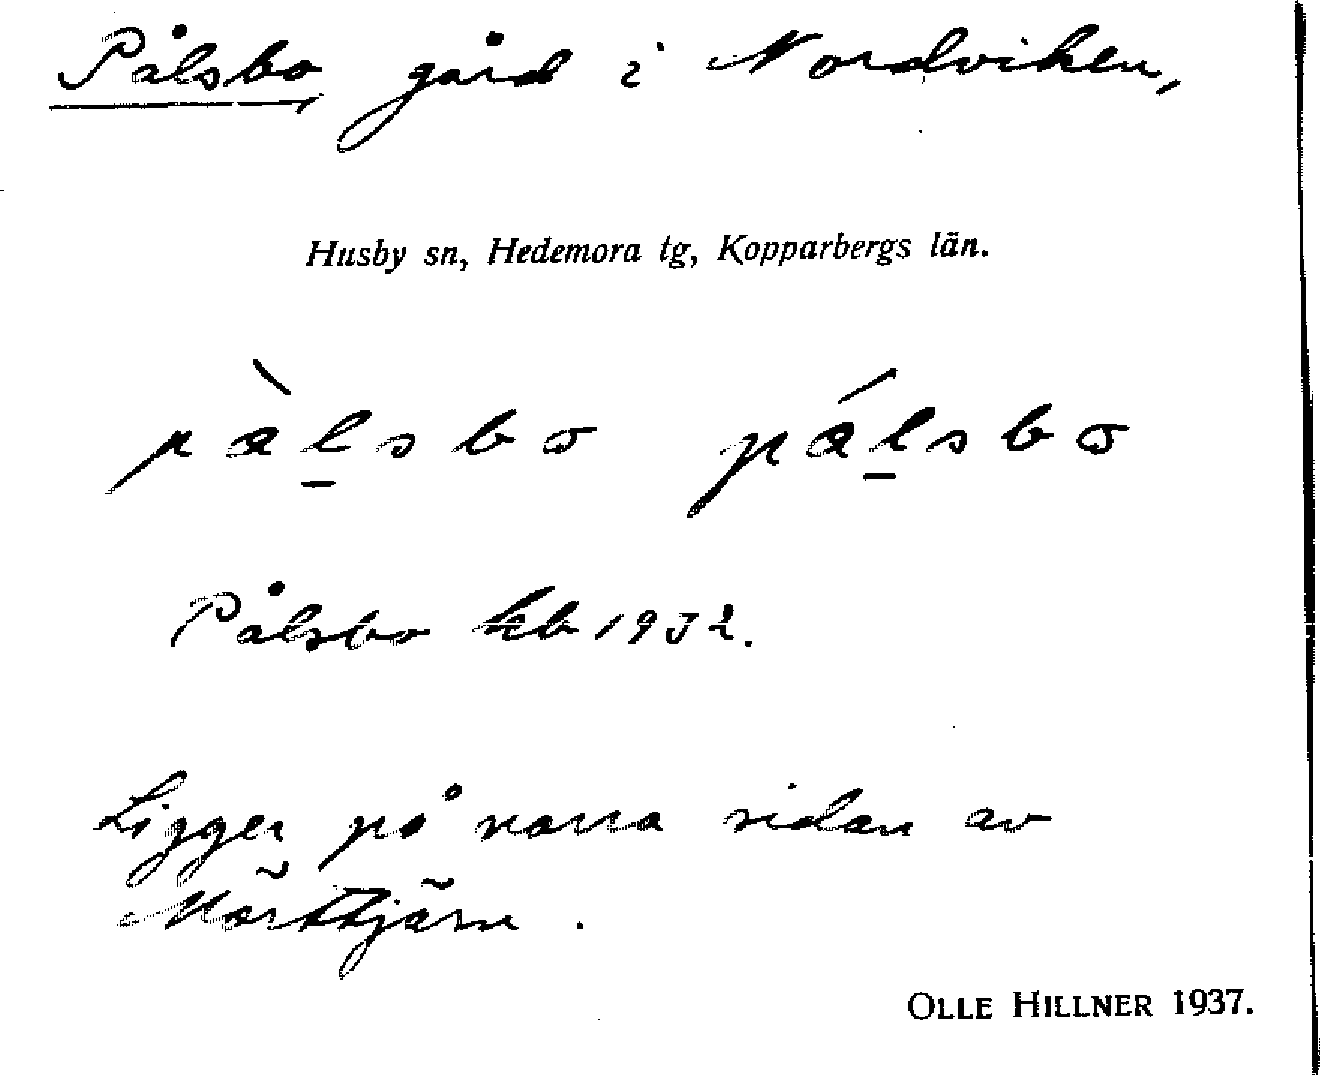 Pålsbo, gård i Nordviken,
Husby sn, Hedemora tg, Kopparbergs län.
pàl̲sbo pál̲sbo
Pålsbo kb 1932.
Ligger på norra sidan av
Mörttjärn.
OLLE HILLNER 1937.